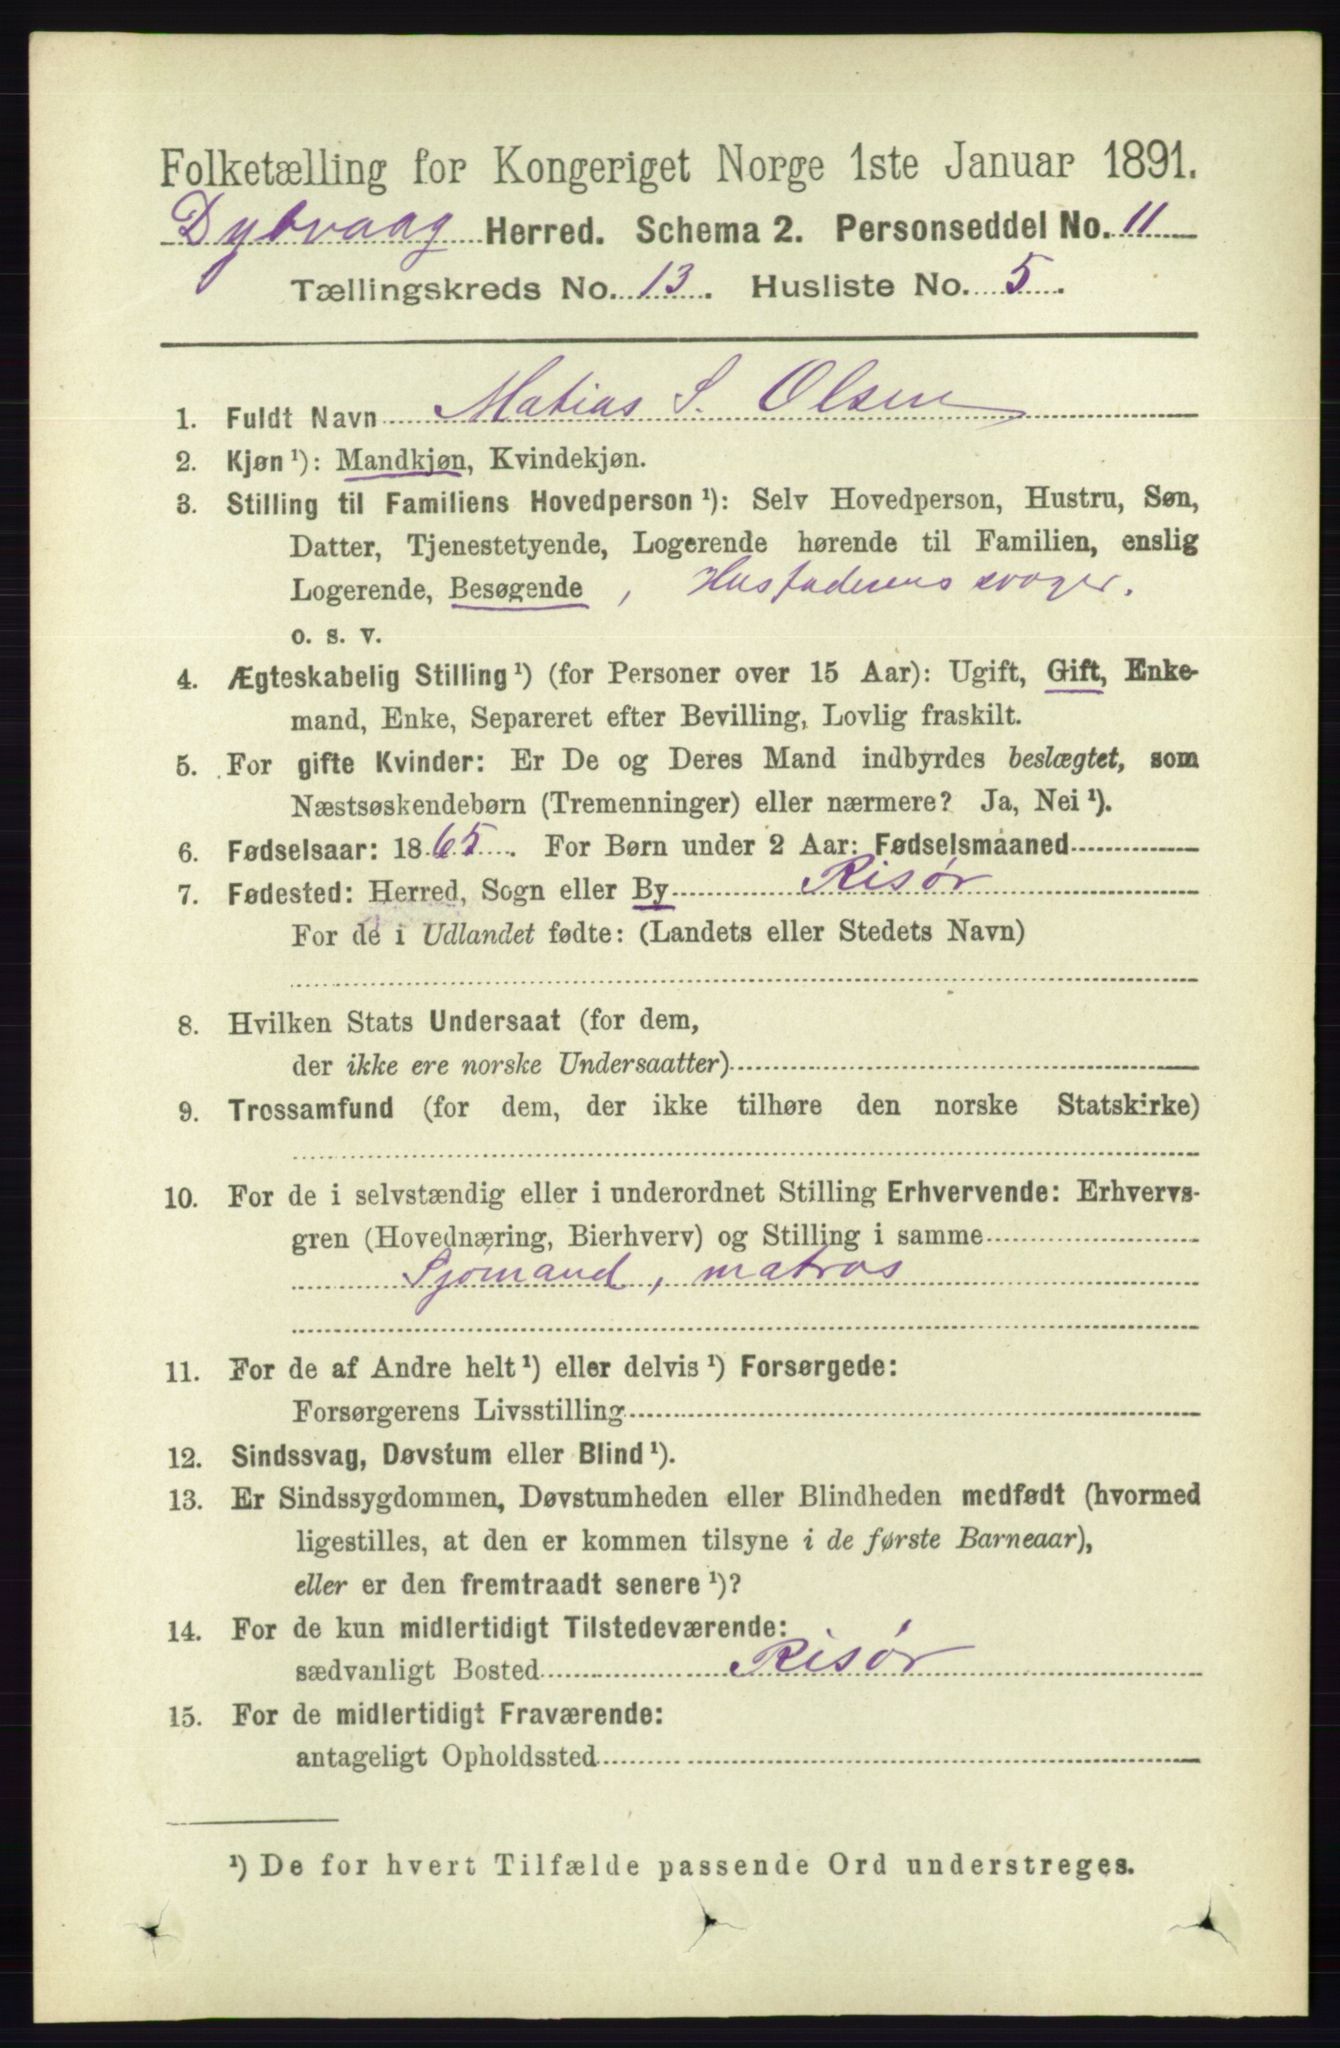 Folketælling for Kongeriget Norge 1ste Januar 1891.
Dybvaag Herred. Schema 2. Personseddel No. 11
Tællingskreds No. 13. Husliste No. 5.
1. Fuldt Navn Matias S. Olsen
2. Kjøn ¹): Mandkjøn, Kvindekjøn.
3. Stilling til Familiens Hovedperson ¹): Selv Hovedperson, Hustru, Søn,
Datter, Tjenestetyende, Logerende hørende til Familien, enslig
Logerende, Besøgende, Husfaderens svoger.
o. s. v.
4. Ægteskabelig Stilling ¹) (for Personer over 15 Aar): Ugift, Gift, Enke-
mand, Enke, Separeret efter Bevilling, Lovlig fraskilt.
5. For gifte Kvinder: Er De og Deres Mand indbyrdes beslægtet, som
Næstsøskendebørn (Tremenninger) eller nærmere? Ja, Nei ¹).
6. Fødselsaar: 1865. For Børn under 2 Aar: Fødselsmaaned
7. Fødested: Herred, Sogn eller By Risør
For de i Udlandet fødte: (Landets eller Stedets Navn)
8. Hvilken Stats Undersaat (for dem,
der ikke ere norske Undersaatter)
9. Trossamfund (for dem, der ikke tilhøre den norske Statskirke)
10. For de i selvstændig eller i underordnet Stilling Erhvervende: Erhvervs-
gren (Hovednæring, Bierhverv) og Stilling i samme
Sjømand, matros
11. For de af Andre helt ¹) eller delvis ¹) Forsørgede:
Forsørgerens Livsstilling
12. Sindssvag, Døvstum eller Blind ¹).
13. Er Sindssygdommen, Døvstumheden eller Blindheden medfødt (hvormed
ligestilles, at den er kommen tilsyne i de første Barneaar),
eller er den fremtraadt senere ¹)?
14. For de kun midlertidigt Tilstedeværende:
sædvanligt Bosted Risør
15. For de midlertidigt Fraværende:
antageligt Opholdssted
¹) De for hvert Tilfælde passende Ord understreges.